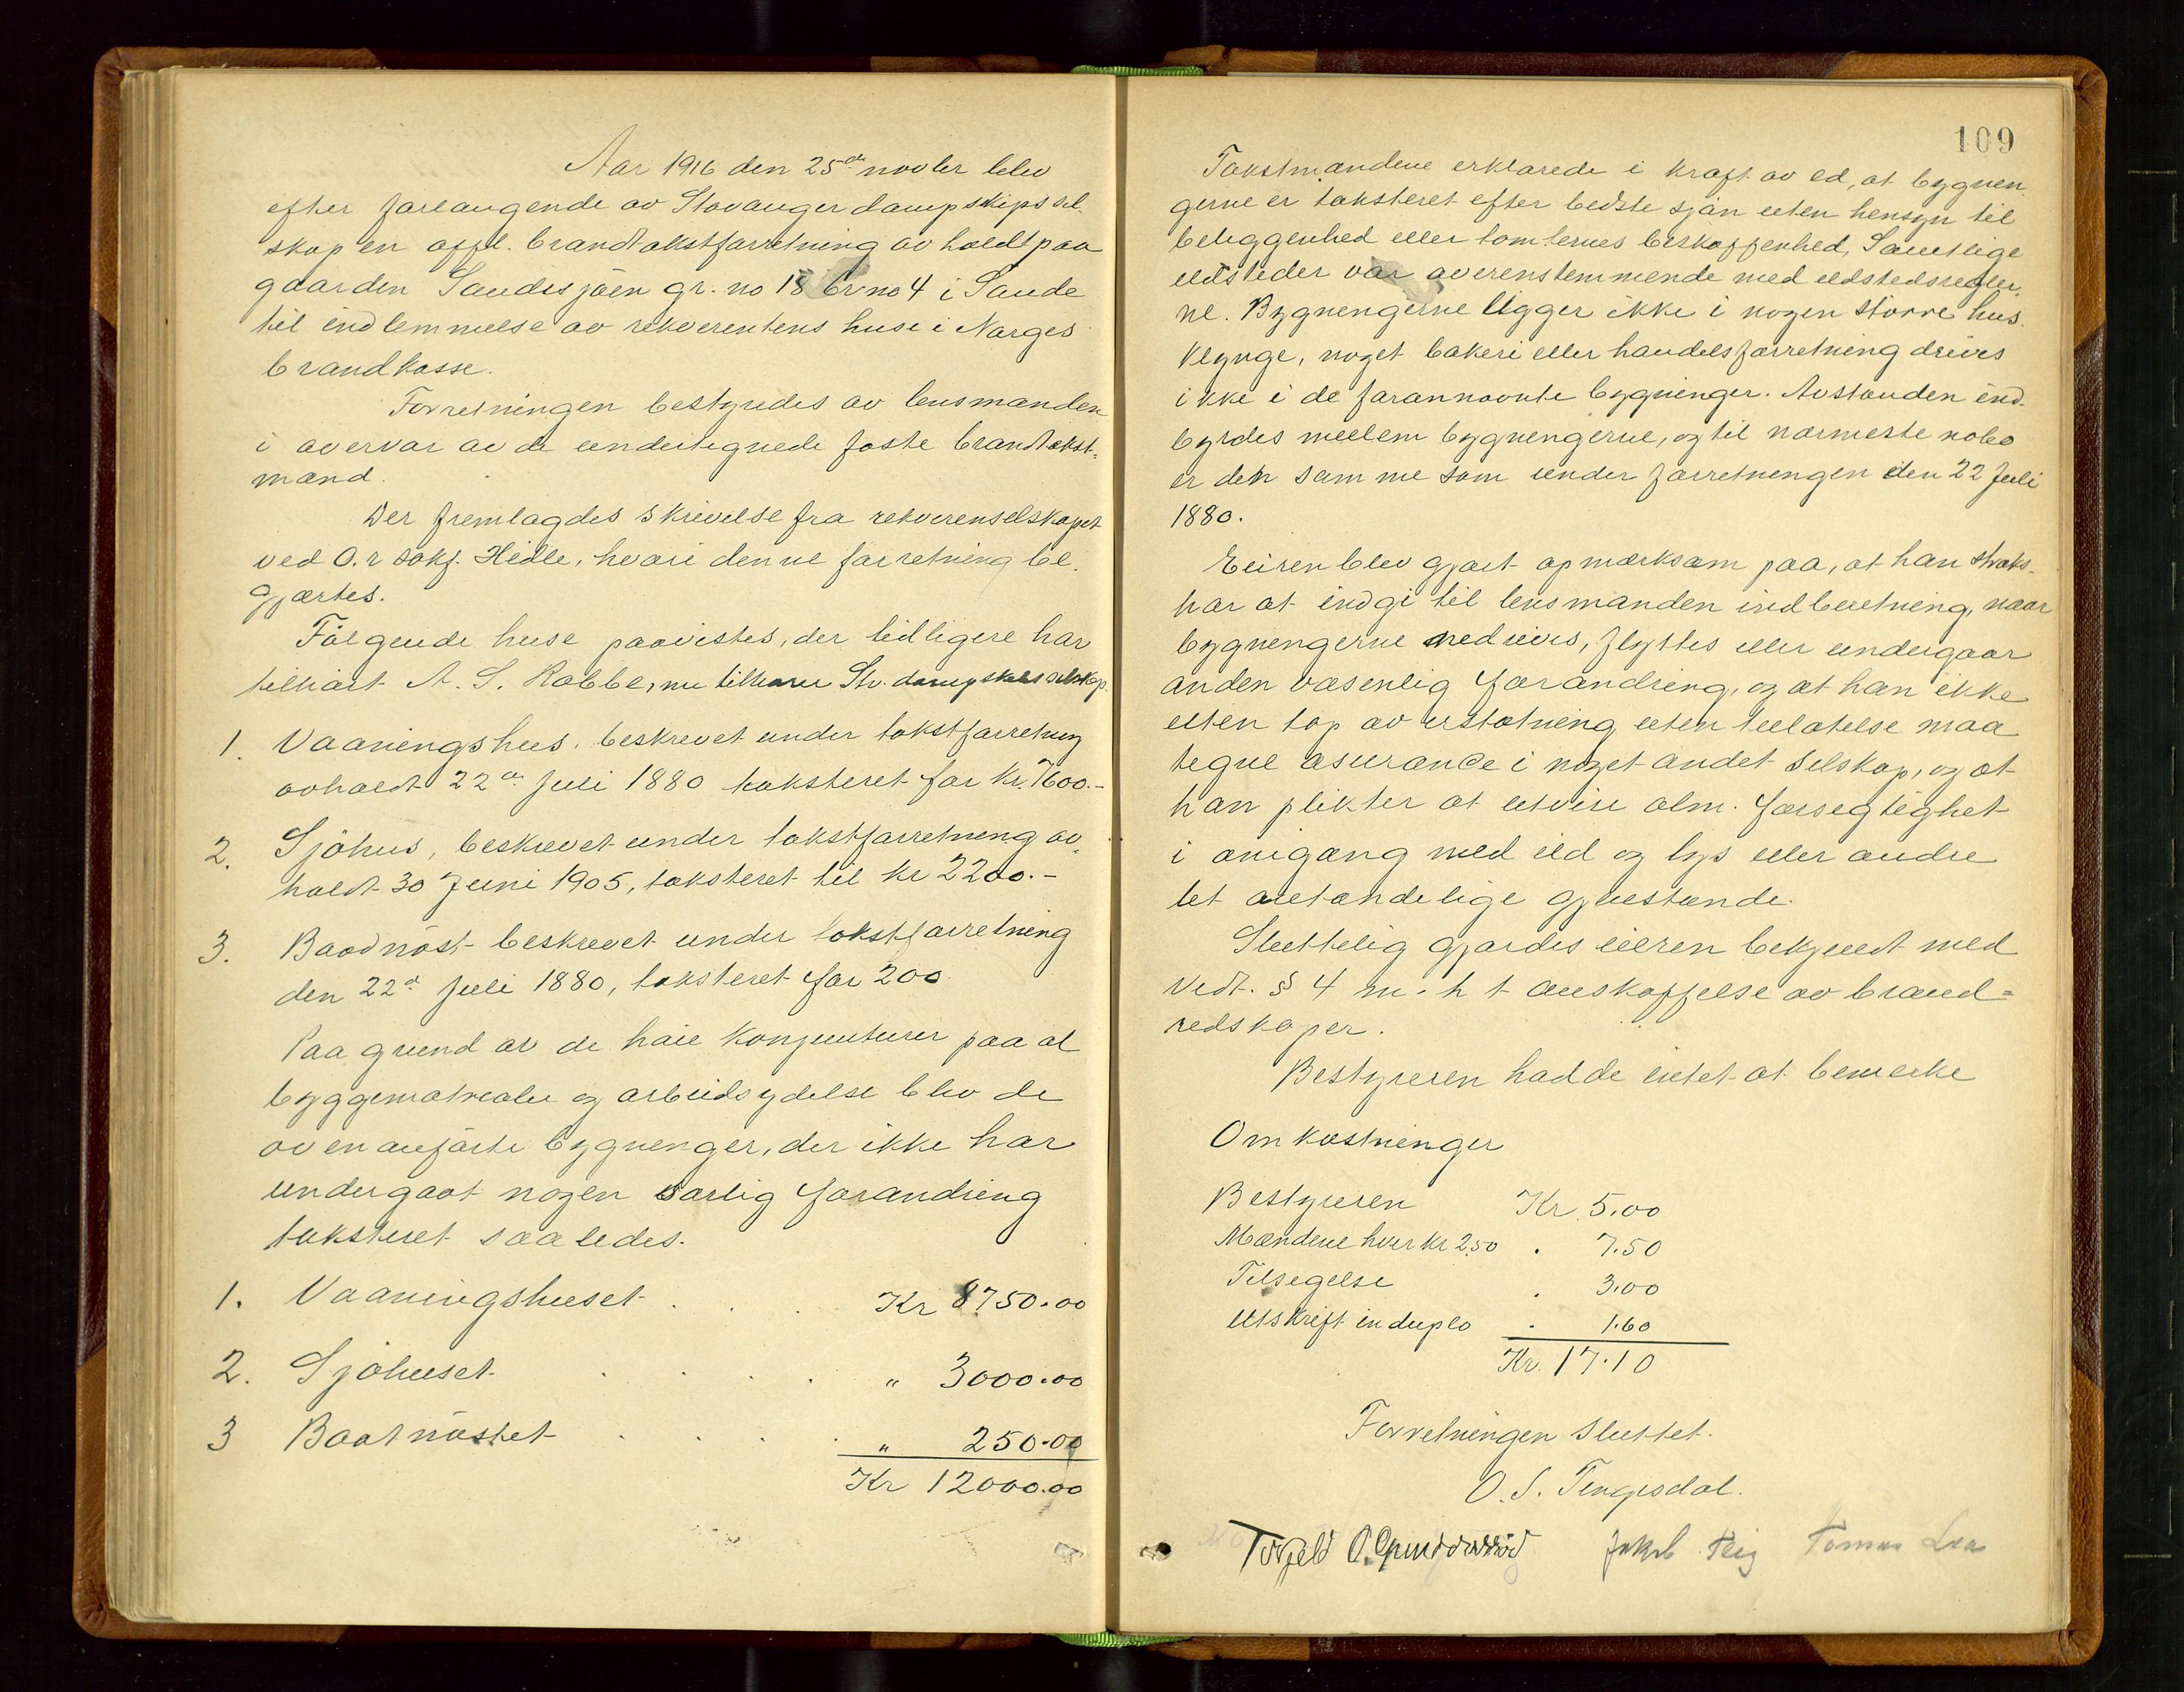 Aar 1916 den 25de novber blev
efter forlangende av Stavanger dampskipssel-
skap en offl. brandtakstforretning avholdt paa
gaarden Sandesjöen gr. no 18 br no 4 i Sande
til indlemmelse av rekverentens huse i Norges
brandkasse.
Forretningen bestyredes av lensmanden
i overvær av de undertegnede faste brandtakst-
mænd.
Der fremlagdes skrivelse fra rekverenselskapet
ved O.r sakf. Hidle, hvori denne forretning be-
gjærtes.
Følgende huse paavistes, der tidligere har
tilhørt A. S. Rabbe, nu tilhører Stv. dampskibsselskap.
1. Vaaningshus, beskrevet under takstforretning
avholdt 22de Juli 1880 taksteret for Kr. 7600.-
2. Sjöhus, beskrevet under takstforretning av-
holdt 30 Juni 1905, taksteret til kr 2200.-
3. Baadnöst beskrevet under takstforretning
den 22d Juli 1880, taksteret for 200
Paa grund av de høie Konjunturer paa al
byggematrealer og arbeidsydelse blev de
ovenanførte bygninger, der ikke har
undergaat nogen særlig forandring
taksteret saaledes.
1. Vaaningshuset . . . Kr 8750.00
2. Sjöhuset . . . . " 3000.00
3 Baatnöstet . . . . " 250.00
Kr 12000.00
109
Takstmændene erklærede i kraft av ed, at bygnin
gerne er taksteret efter bedste sjön uten hensyn til
beliggenhed eller tomternes beskaffenhed, Samtlige
ildsteder var overenstemmende med ildstedsregler
ne. Bygningerne ligger ikke i nogen större hus
klynge, noget bakeri eller handelsforretning drives
ikke i de forannævnte bygninger. Avstanden ind-
byrdes mellem bygningerne, og til nærmeste nabo
er den samme som under forretningen den 22 Juli
1880.
Eieren blev gjort opmærksom paa, at han straks
har at indgi til lensmanden indberetning, naar
bygningerne nedrives, flyttes eller undergaar
anden væsenlig forandring, og at han ikke
uten tap av erstatning uten tillatelse maa
tegne asurance i noget andet selskap, og at
han plikter at utvise alm. forsegtighet
i omgang med ild og lys eller andre
let antændelige gjenstande.
Sluttelig gjordes eieren bekjendt med
vedt. § 4 m. h t anskaffelse av brand=
redskaper.
Bestyreren hadde intet at bemerke
Omkostninger
Bestyreren Kr 5.00
Mændene hver kr 2.50 . 7.50
Tilsigelse . 3.00
Utskrift in duplo . 1.60
Kr. 17.10
Forretningen sluttet.
O. S. Tengesdal.
Jakob Tomas Lea